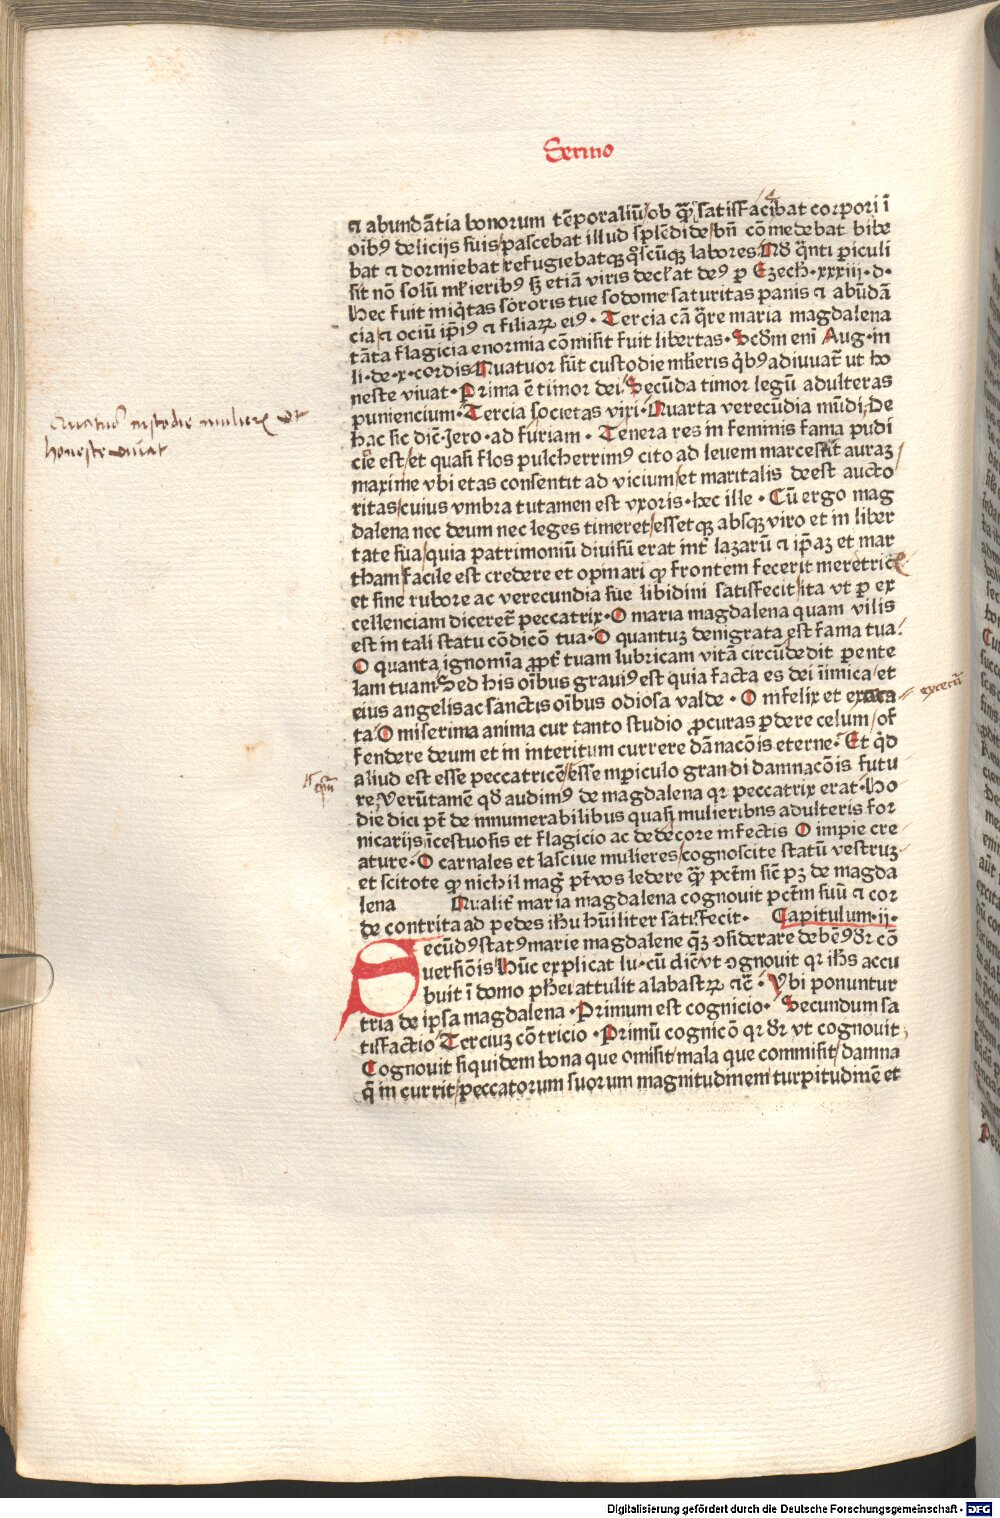 Sermo
⁊ abundãtia bonorum tẽporaliũ/ob qͣꝫ satisfaciebat corpori ĩ
oĩbꝰ delicijs suis/pascebat illud splẽdide/bñ cõmedebat bibe
bat ⁊ dormiebat refugiebatqꝫ qͦscũqꝫ labores. Ad qͣnti ꝑiculi
sit nõ solũ mĩerib⁹ sꝫ etiã viris declͣat de⁹ ꝑ Ezech·xxxiij·d·
Hec fuit iniqͥtas sororis tue sodome saturitas panis ⁊ abũdã
cia/⁊ ociũ ip̃iꝰ ⁊ filiaꝝ eiꝰ· Tercia cã qͣre maria magdalena
tãta flagicia enormia cõmisit fuit libertas· Scd̃m eni Aug·in
li·de·x·cordis Quatuor sũt custodie mĩeris qͥbꝰ adiuuat̃ ut ho
neste viuat· Prima ẽ timor dei/Secũda timor legũ adulteras
puniencium· Tercia societas viri· Quarta verecũdia mũdi/De
hac sic diĉ Jero·ad furiam· Tenera res in feminis fama pudi
cie est/et quasi flos pulcherrimꝰ cito ad leuem marcessit auraꝫ
maxime vbi etas consentit ad vicium/et maritalis deest aucto
ritas/cuius vmbra tutamen est vxoris·hec ille· Cũ ergo mag
dalena nec deum nec leges timeret/essetqꝫ absqꝫ viro et in liber
tate sua/quia patrimoniũ diuisũ erat int̃ lazarũ ⁊ ip̃aꝫ et mar
tham/facile est credere et opinari qꝫ frontem fecerit meretrice
et sine rubore ac verecundia sue libidini satisfecit/ita vt ꝑ ex
cellenciam diceret̃ peccatrix· O maria magdalena quam vilis
est in tali statu cõdicõ tua· O quantuꝫ denigrata est fama tua
O quanta ignomĩa ꝓpt̃ tuam lubricam vitã circũdedit ꝑ ente
lam tuam Sed his oĩbus grauiꝰ est quia facta es dei ĩimica/et
eius angelis ac sanctis oĩbus odiosa valde· O infelix et exceca
ta O miserima anima cur tanto studio ꝓcuras ꝑdere celum/of
fendere deum et in interitum currere dãnacõis eterne· Et qͥd
aliud est esse peccatricẽ/esse in ꝑiculo grandi damnacõis futu
re/Verũtamẽ qd̃ audimꝰ de magdalena qꝛ peccatrix erat· Ho
die dici pt̃ de innumerabilibus quasi mulieribus adulteris for
nicarijs ĩcestuosis et flagicio ac dedecore infectis O impie cre
ature· O carnales et lasciue mulieres/cognoscite statũ vestruꝫ
et scitote qꝫ nichil mag̃ pt̃ vos ledere qͣꝫ pctm̃ sic̃ pꝫ de magda
lena Qualit̃ maria magdalena cognouit pctm̃ suũ ⁊ cor
de contrita ad pedes ihũ hũiliter satisfecit· Capitulum·ij·
Secũdꝰ statꝰ marie magdalene qͣꝫ ꝯsiderare debẽꝰ dr̃ cõ
uersiõis Hũc explicat lu·cũ diĉ vt ꝯgnouit qꝛ ihs accu
buit ĩ domo phĩei attulit alabastrꝝ ⁊c̃· Vbi ponuntur
tria de ipsa magdalena· Primum est cognicio· Secundum sa
tisfactio Terciuꝫ cõtricio· Primũ cognicõ qꝛ dr̃ vt cognouit
Cognouit siquidem bona que omisit/mala que commisit/damna
q̃ incurrit/peccatorum suorum magnitudinem turpitudinẽ et
Quatuor custodie mulierꝫ vt
honeste viuat
excecata
Digitalisierung gefördert durch die Deutsche Forschungsgemeinschaft - DFG